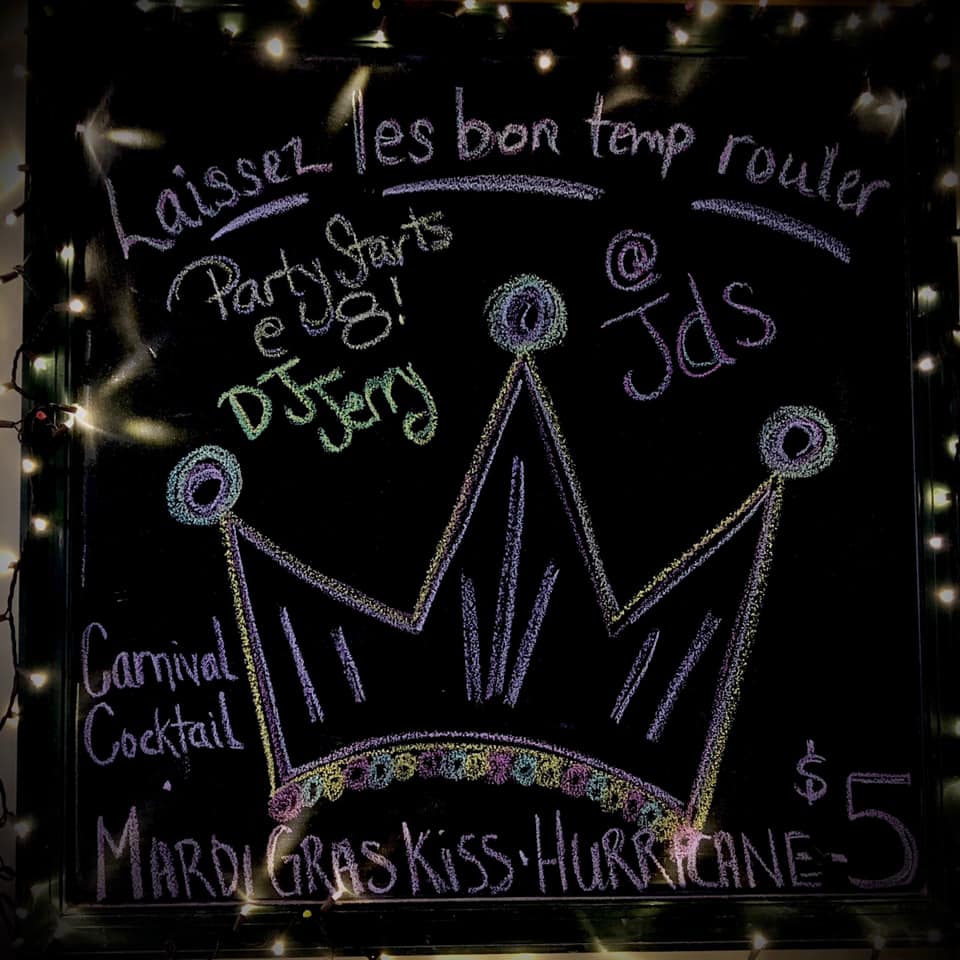 Laissez les bon temp rouler
Party Starts
@ 8!
DJ Jerry
@
Jds
Carnival
Cocktail
MARDI GRAS KiSS · HURRICANE - $5